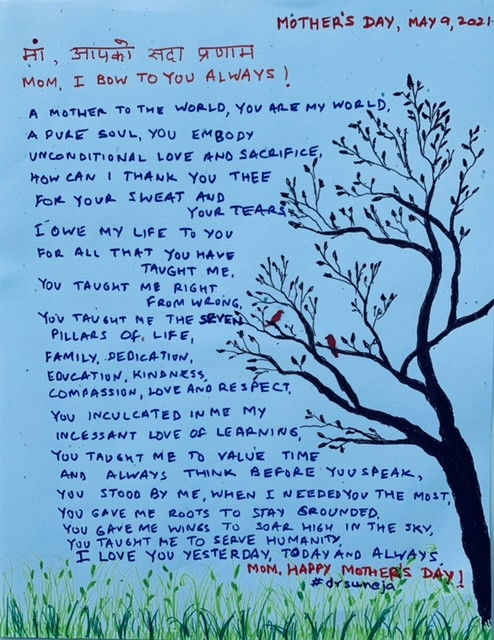 MOTHER'S DAY, MAY 9, 2021
मां, आपको सदा प्रणाम
MOM, I BOW TO YOU ALWAYS!
A MOTHER TO THE WORLD, YOU ARE MY WORLD,
A PURE SOUL, YOU EMBODY
UNCONDITIONAL LOVE AND SACRIFICE,
HOW CAN I THANK YOU THEE
FOR YOUR SWEAT AND
YOUR TEARS,
I OWE MY LIFE TO YOU
FOR ALL THAT YOU HAVE
TAUGHT ME,
YOU TAUGHT ME RIGHT
FROM WRONG,
YOU TAUGHT ME THE SEVEN
PILLARS OF LIFE,
FAMILY, DEDICATION,
EDUCATION, KINDNESS,
COMPASSION, LOVE AND RESPECT,
YOU INCULCATED IN ME MY
INCESSANT LOVE OF LEARNING,
YOU TAUGHT ME TO VALUE TIME
AND ALWAYS THINK BEFORE YOU SPEAK,
YOU STOOD BY ME, WHEN I NEEDED YOU THE MOST,
YOU GAVE ME ROOTS TO STAY GROUNDED,
YOU GAVE ME WINGS TO SOAR HIGH IN THE SKY,
YOU TAUGHT ME TO SERVE HUMANITY,
I LOVE YOU YESTERDAY, TODAY AND ALWAYS
MOM, HAPPY MOTHER'S DAY!
#drsuneja